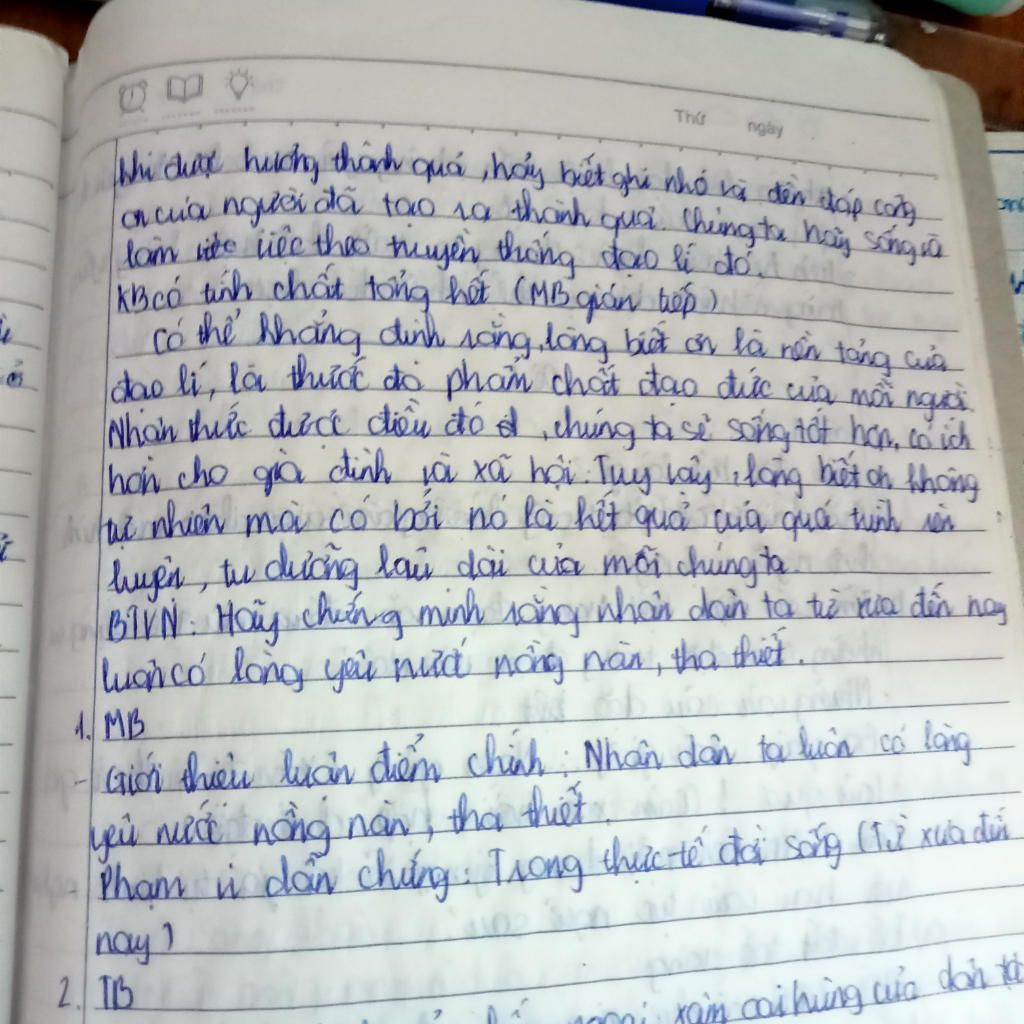 Thứ ngày
Khi được hưởng thành quả, hãy biết ghi nhớ và đền đáp công
ơn của người đã tạo ra thành quả. Chúng ta hãy sống và
làm việc theo truyền thống đạo lí đó.
KB có tính chất tổng kết (MB gián tiếp)
Có thể khẳng định rằng, lòng biết ơn là nền tảng của
đạo lí, là thước đo phẩm chất đạo đức của mỗi người.
Nhận thức được điều đó, chúng ta sẽ sống tốt hơn, có ích
hơn cho gia đình và xã hội. Tuy vậy, lòng biết ơn không
tự nhiên mà có bởi nó là kết quả của quá trình rèn
luyện, tu dưỡng lâu dài của mỗi chúng ta.
BTVN: Hãy chứng minh rằng nhân dân ta từ xưa đến nay
luôn có lòng yêu nước nồng nàn, tha thiết.
1. MB
- Giới thiệu luận điểm chính: Nhân dân ta luôn có lòng
yêu nước nồng nàn, tha thiết.
Phạm vi dẫn chứng: Trong thực tế đời sống (Từ xưa đến
nay)
2. TB
ngoại xâm oai hùng của dân